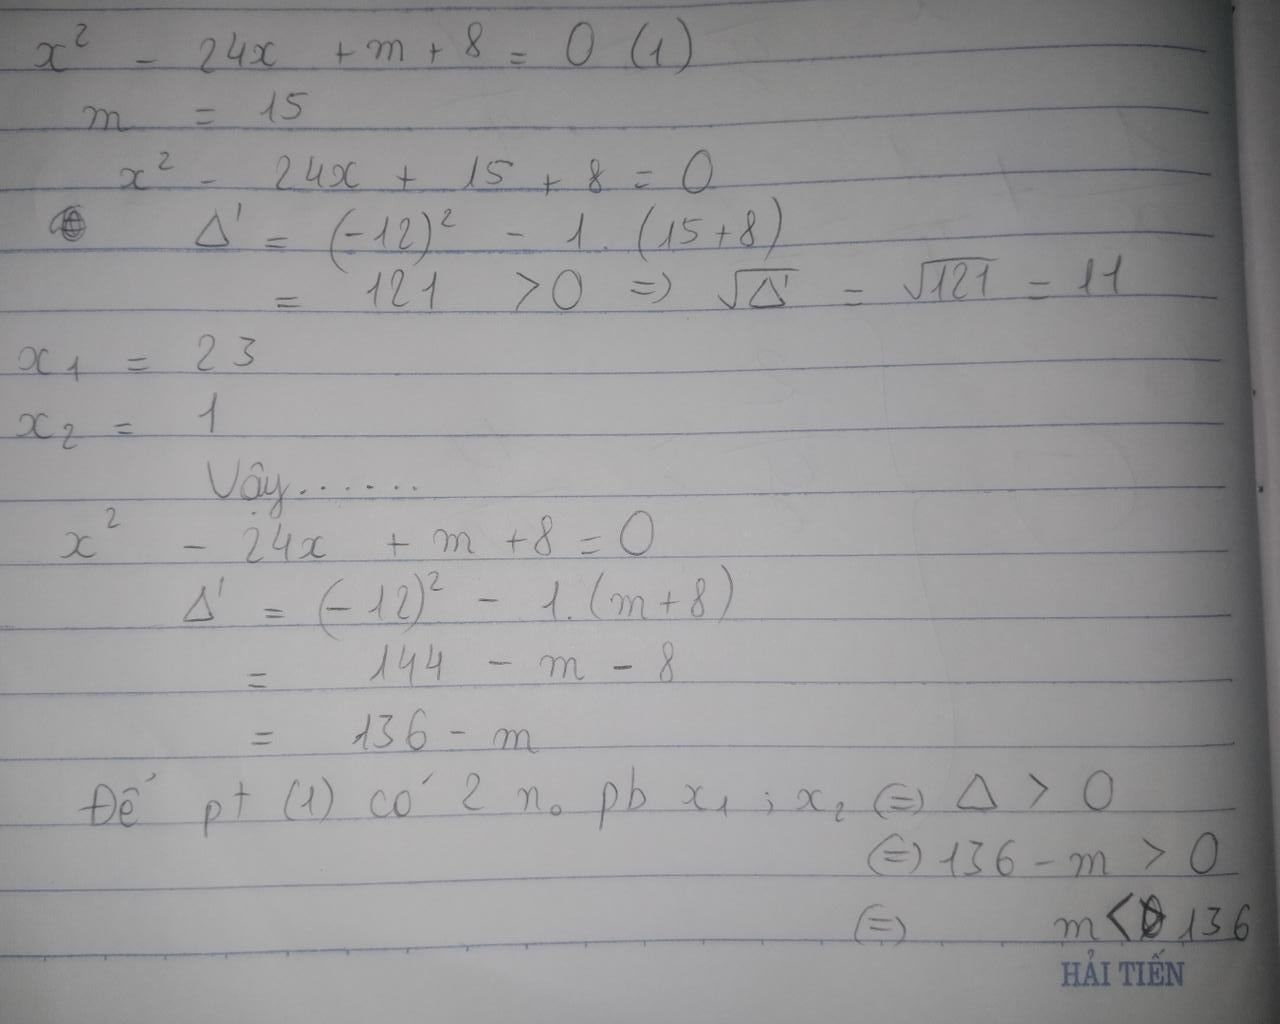 x² - 24x + m + 8 = 0 (1)
m = 15
x² - 24x + 15 + 8 = 0
Δ' = (-12)² - 1. (15+8)
= 121 > 0 => √Δ' = √121 = 11
x₁ = 23
x₂ = 1
Vậy......
x² - 24x + m + 8 = 0
Δ' = (-12)² - 1. (m+8)
= 144 - m - 8
= 136 - m
Để pt (1) có 2 n₀ pb x₁ ; x₂ (=) Δ > 0
(=) 136 - m > 0
(=) m < 136
HẢI TIẾN